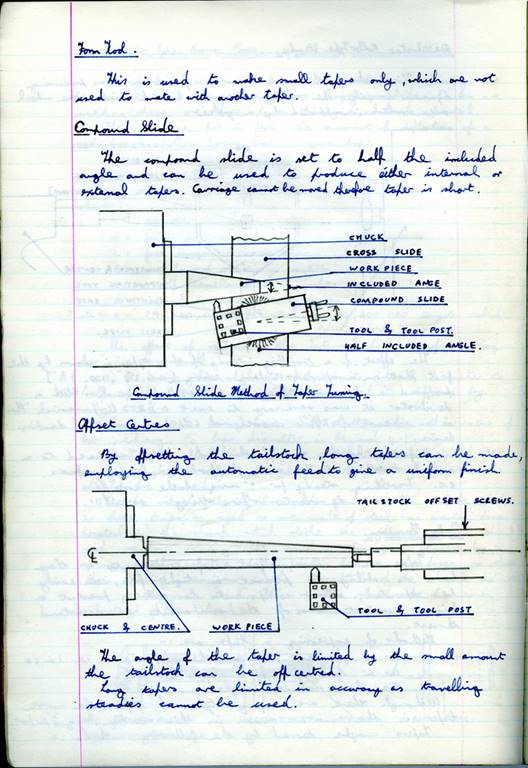 Form Tool.
This is used to make small tapers only, which are not
used to mate with another taper.
Compound Slide
The compound slide is set to half the included
angle and can be used to produce either internal or
external tapers. Carriage cannot be moved therefore taper is short.
CHUCK
CROSS SLIDE
WORK PIECE
INCLUDED ANGE
COMPOUND SLIDE
TOOL & TOOL POST.
HALF INCLUDED ANGLE.
Compound Slide Method of Taper Turning.
Offset Centres
By offsetting the tailstock, long tapers can be made,
employing the automatic feed to give a uniform finish.
TAILSTOCK OFFSET SCREWS.
CL
TOOL & TOOL POST
CHUCK & CENTRE. WORK PIECE
The angle of the taper is limited by the small amount
the tailstock can be off centred.
Long tapers are limited in accuracy as travelling
steadies cannot be used.